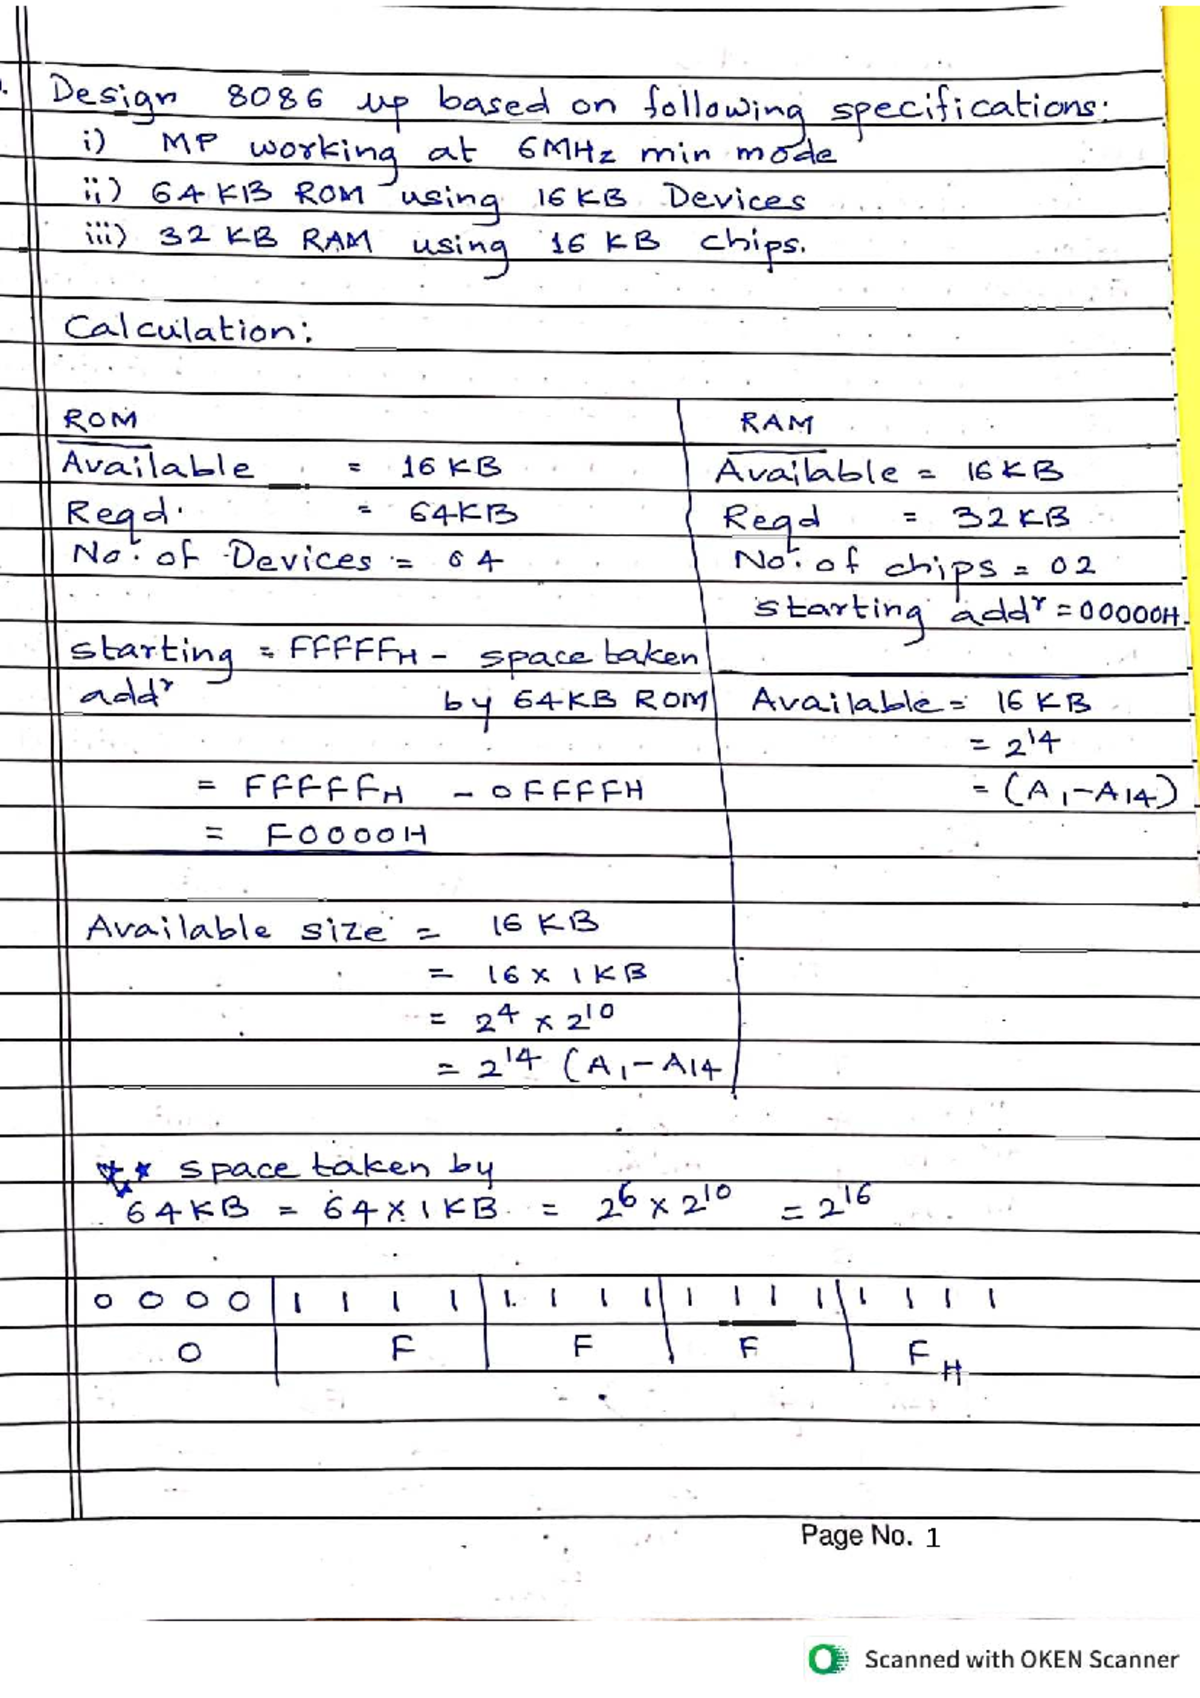 Design 8086 up based on following specifications:
i) MP working at 6MHz min mode
ii) 64 KB ROM using 16 KB Devices
iii) 32 KB RAM using 16 KB chips.
Calculation:
ROM
Available = 16 KB
Reqd. = 64KB
No. of Devices = 04
starting addr = FFFFFH - space taken by 64KB ROM
= FFFFFH - 0FFFFH
= F0000H
Available size = 16 KB
= 16 x 1 KB
= 2^4 x 2^10
= 2^14 (A1-A14
RAM
Available = 16 KB
Reqd = 32 KB
No. of chips = 02
starting addr = 00000H.
Available = 16 KB
= 2^14
= (A1-A14)
** space taken by
64KB = 64 x 1 KB = 2^6 x 2^10 = 2^16
0 0 0 0 | 1 1 1 1 | 1 1 1 1 | 1 1 1 1 | 1 1 1 1
0 | F | F | F | F H
Page No. 1
Scanned with OKEN Scanner